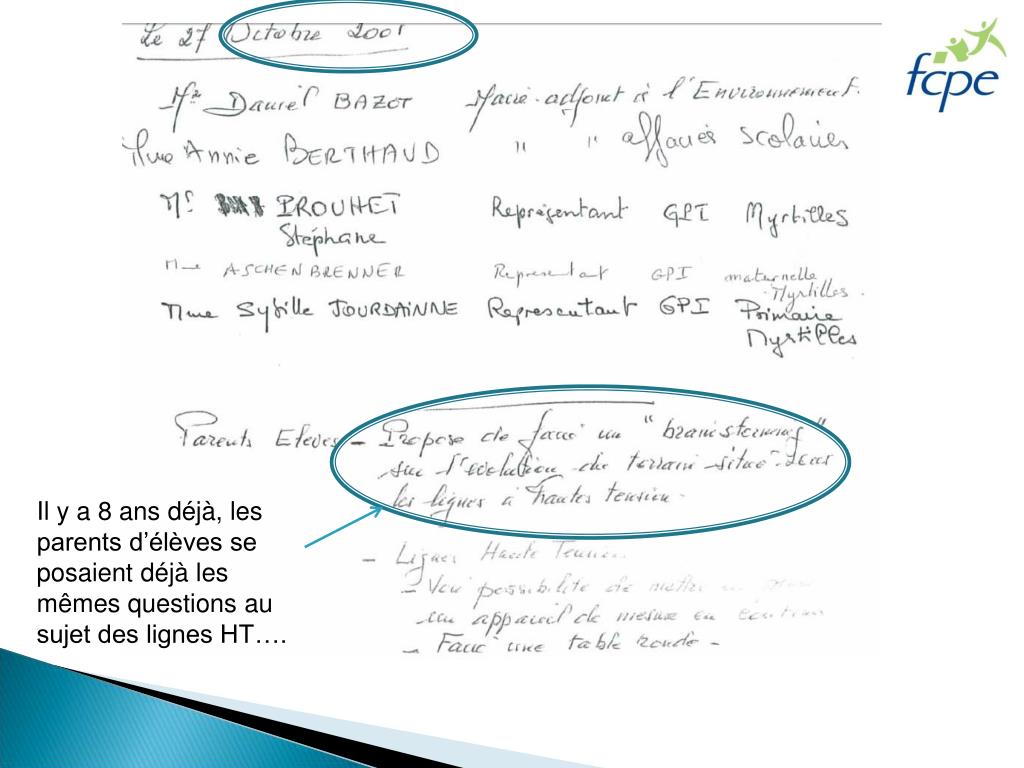 Le 27 Octobre 2001
fcpe
Mr Daniel BAZOT Maire-adjoint à l'Environnement.
Mme Annie BERTHAUD " " affaires scolaires
Mr PROUHET Représentant GPI Myrtilles
Stéphane
Mme ASCHENBRENNER Représentant GPI maternelle
Myrtilles.
Mme Sybille JOURDAINNE Representant GPI Primaire
Myrtilles
Parents Eleves - Propose de faire un "brainstorming"
sur l'évolution du terrain situé sous
les lignes à hautes tension.
Il y a 8 ans déjà, les
parents d'élèves se
posaient déjà les
mêmes questions au
sujet des lignes HT….
- Lignes Haute Tension
- Voir possibilité de mettre en
un appareil de mesure en continu
- Faire une table ronde -